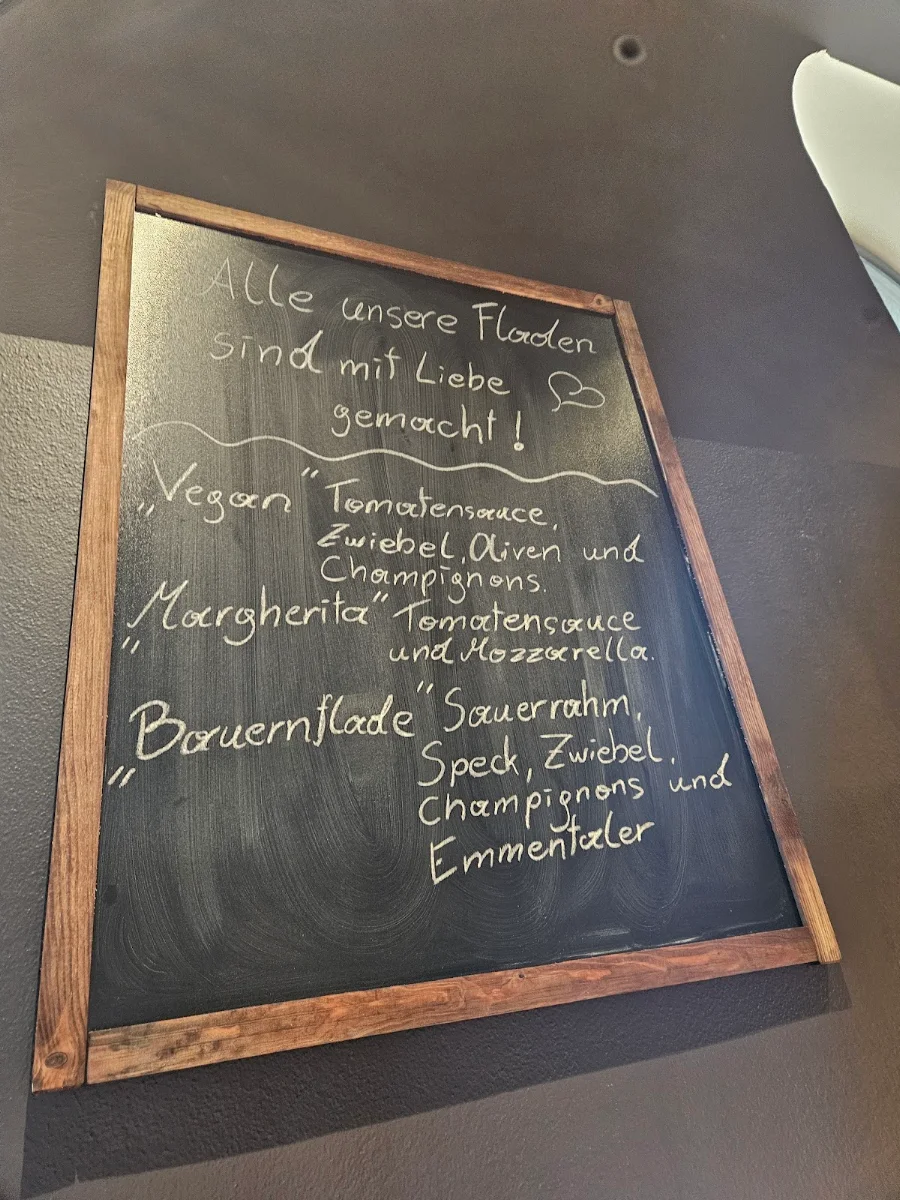 Alle unsere Fladen
sind mit Liebe
gemacht!
„Vegan" Tomatensauce,
Zwiebel, Oliven und
Champignons.
„Margherita" Tomatensauce
und Mozzarella.
„Bauernflade" Sauerrahm,
Speck, Zwiebel,
Champignons und
Emmentaler